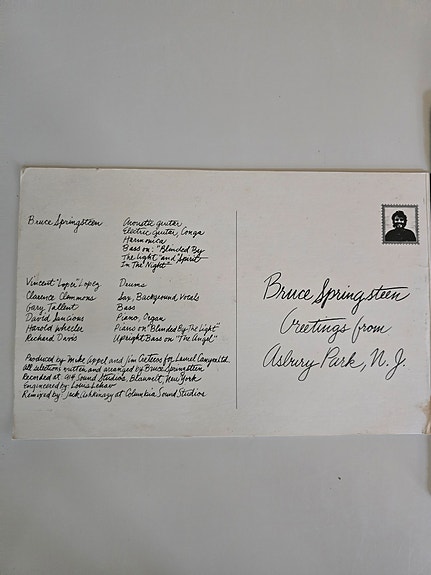 Bruce Springsteen Acoustic guitar
Electric guitar, Conga
Harmonica
Bass on: "Blinded By
The Light" and "Spirit
In The Night"
Vincent "Loper" Lopez Drums
Clarence Clemmons Sax, Background Vocals
Gary Tallent Bass
David Sancious Piano, Organ
Harold Wheeler Piano on "Blinded By The Light"
Richard Davis Upright Bass on "The Angel"
Produced by Mike Appel and Jim Cretecos for Laurel Canyon Ltd.
All selections written and arranged by Bruce Springsteen
Recorded at 914 Sound Studios, Blauvelt, New York
Engineered by: Louis Lahav
Remixed by: Jack Ashkinazy at Columbia Sound Studios
Bruce Springsteen
Greetings from
Asbury Park, N.J.